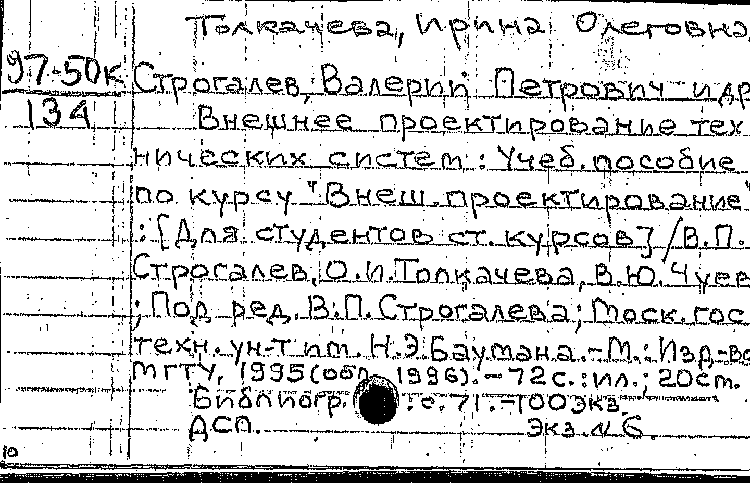 Толкачева, Ирина Олеговна
97-50к
134
Строгалев, Валерий Петрович и др
Внешнее проектирование тех
нических систем : Учеб. пособие
по курсу "Внеш. проектирование"
: [Для студентов ст. курсов] / В.П.
Строгалев, О.И. Толкачева, В.Ю. Чуев
; Под ред. В.П. Строгалева; Моск. гос
техн. ун-т им. Н.Э. Баумана. - М. : Изд-во
МГТУ, 1995 (обл. 1996). - 72 с. : ил. ; 20 см.
Библиогр. : с. 71. - 100 экз.
ДСП. Экз. N 6.
10